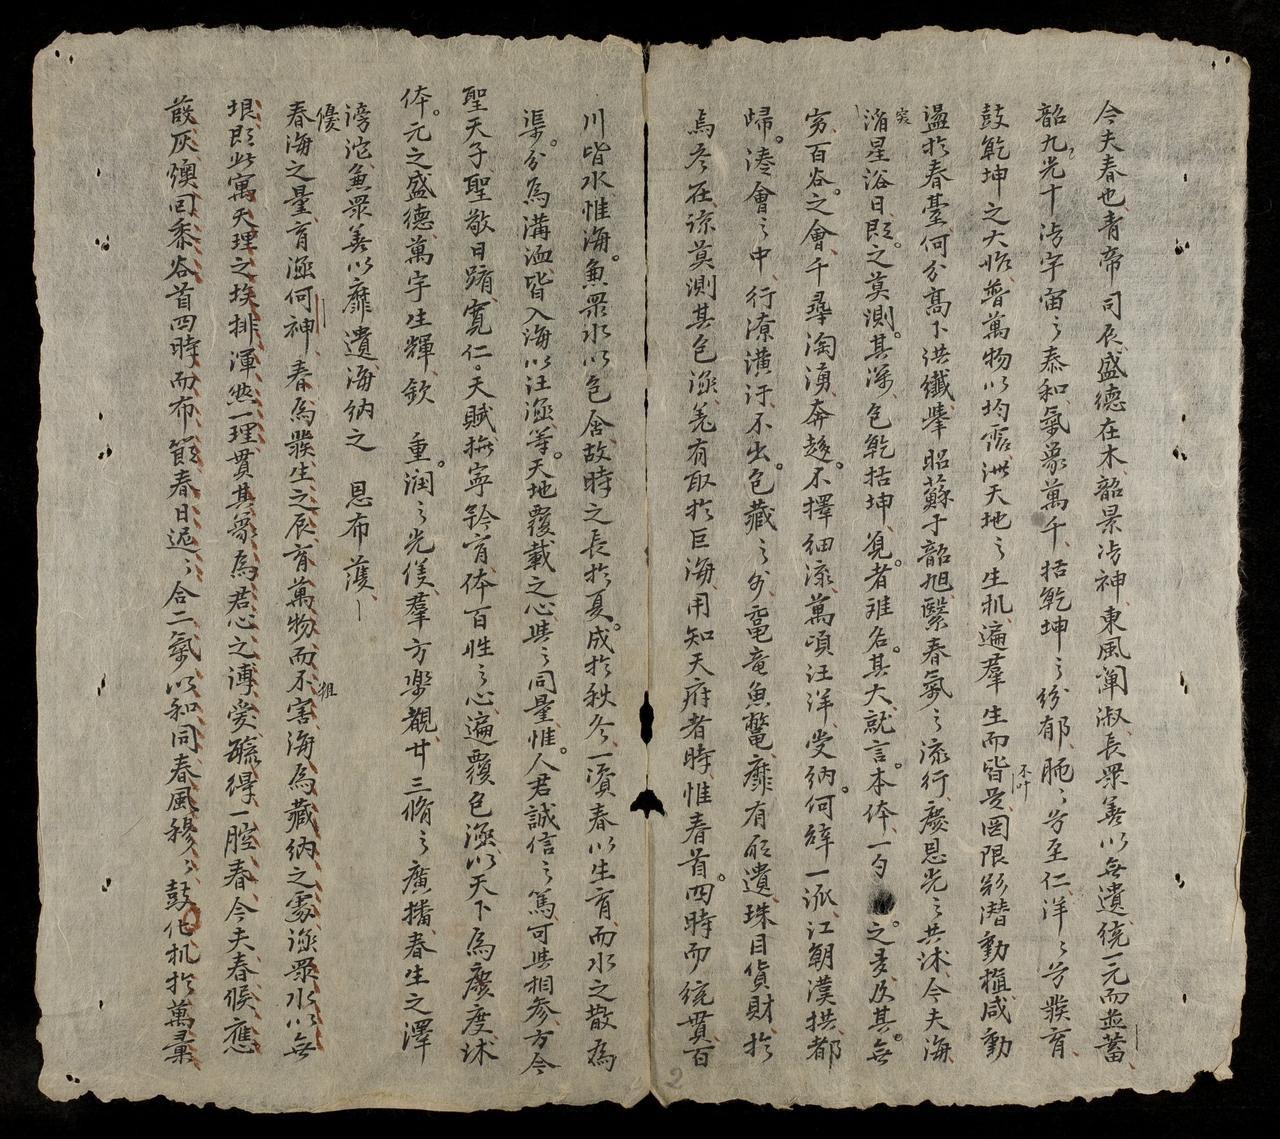 今夫春也青帝司辰盛德在木韶景片神東風闡淑長眾善以無遺統一元而並蓄
韶九光十片宇宙之泰和氣象萬千括乾坤之紛郁肫々兮至仁洋々兮發育
不叶
鼓乾坤之大恪普萬物以均霑洪天地之生机遍群生而皆足罔限彩潛動植咸動
盪於春臺何分高下洪纖舉昭蘇于韶旭繄春氣之流行慶恩光之共沐今夫海
滔星浴日既之莫測其深包乾括坤覓者誰名其大就言本体一勺之多及其無
窮百谷之會千尋淘湧奔趍不擇細流萬頃汪洋受納何辞一派江朝漢拱都
歸湊會之中行潦潢汙不出包藏之外黿竜魚鱉靡有所遺珠目貨財於
焉多在諒莫測其包涵羌有取於巨海用知天府者時惟春首四時而統貫百
川皆水惟海兼眾水以包含故時之長於夏成於秋冬一資春以生育而水之散為
渠分為溝洫皆入海以汪涵等天地覆載之心與之同量惟人君誠信之篤可與相參方今
聖天子聖敬日躋寬仁天賦撫寧錦宵体百姓之心遍覆包涵以天下為慶度球
体元之盛德萬宇生輝欽 重潤之光僕羣方樂觀廿三脩之廣播春生之澤
滂沱兼眾善以靡遺海納之 恩布濩
優
春海之量育涵何神春為發生之辰育萬物而不害海為藏納之處涵眾水以無
狙
垠即此寓天理之埃排渾然一理貫其眾為君心之溥爱融得一腔春今夫春候應
葭灰燠回黍谷首四時而布節春日遲々合二氣以和同春風穆々鼓化机於萬彙
2